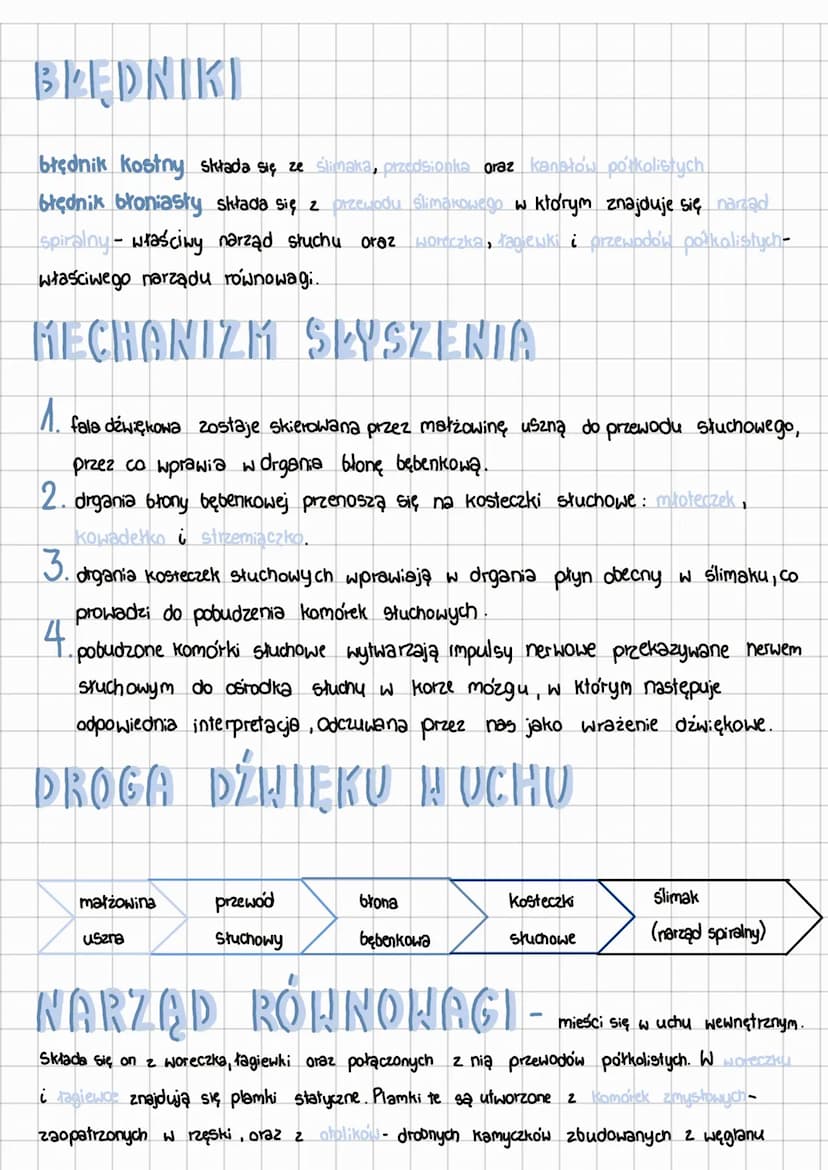 BŁĘDNIKI
błędnik kostny składa się ze ślimaka, przedsionka oraz kanałów półkolistych
błędnik błoniasty składa się z przewodu ślimakowego w którym znajduje się narząd
spiralny - właściwy narząd słuchu oraz woreczka, łagiewki i przewodów półkolistych-
właściwego narządu równowagi.
MECHANIZM SŁYSZENIA
1. fala dźwiękowa zostaje skierowana przez małżowinę uszną do przewodu słuchowego,
przez co wprawia w drgania błonę bębenkową.
2. drgania błony bębenkowej przenoszą się na kosteczki słuchowe: młoteczek,
kowadełko i strzemiączko.
3. drgania kosteczek słuchowych wprawiają w drgania płyn obecny w ślimaku, co
prowadzi do pobudzenia komórek słuchowych.
4. pobudzone komórki słuchowe wytwarzają impulsy nerwowe przekazywane nerwem
słuchowym do ośrodka słuchu w korze mózgu, w którym następuje
odpowiednia interpretacja, odczuwana przez nas jako wrażenie dźwiękowe.
DROGA DŹWIĘKU W UCHU
małżowina przewód błona kosteczki ślimak
uszna słuchowy bębenkowa słuchowe (narząd spiralny)
NARZĄD RÓWNOWAGI - mieści się w uchu wewnętrznym.
Składa się on z woreczka, łagiewki oraz połączonych z nią przewodów półkolistych. W woreczku
i łagiewce znajdują się plamki statyczne. Plamki te są utworzone z komórek zmysłowych-
zaopatrzonych w rzęski, oraz z otolików - drobnych kamyczków zbudowanych z węglanu